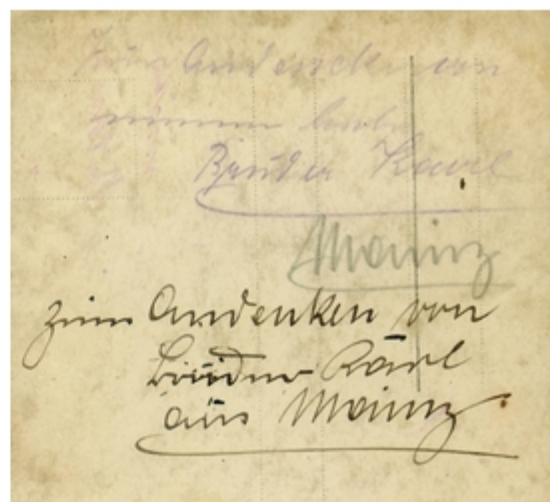 Zum Andencken von
meinem lieben
Bruder Karl
Mainz
zum Andenken von
Bruder Karl
aus Mainz